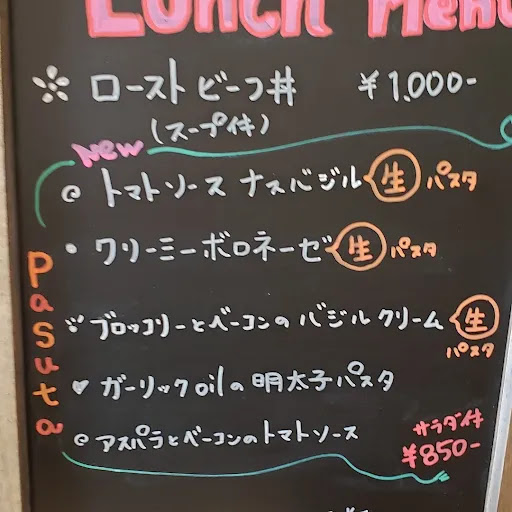 Lunch Menu
ローストビーフ丼 ¥1.000-
(スープ付)
New
トマトソース ナスバジル 生 パスタ
クリーミーボロネーゼ 生 パスタ
ブロッコリーとベーコンのバジルクリーム 生
パスタ
ガーリックoilの明太子パスタ
アスパラとベーコンのトマトソース
サラダ付
¥850-
Pasuta